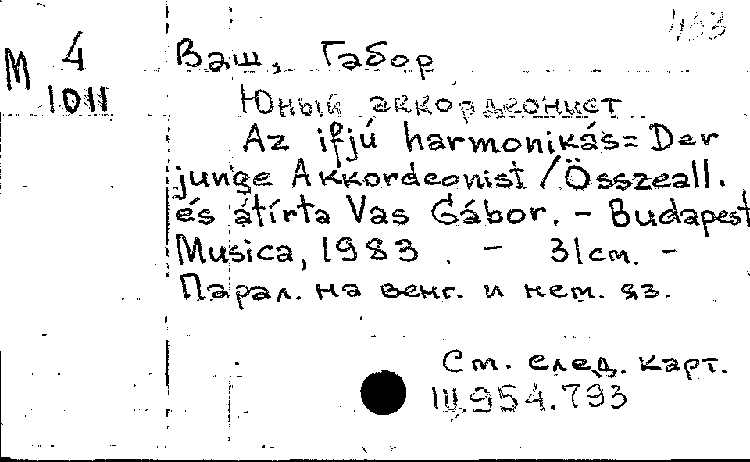 433
М 4 Ваш, Габор
1011
Юный аккордеонист
Az ifjú harmonikás = Der
junge Akkordeonist / Összeáll.
és átírta Vas Gábor. - Budapest
Musica, 1983. - 31 cm. -
Парал. на венг. и нем. яз.
См. след. карт.
Ш954.793